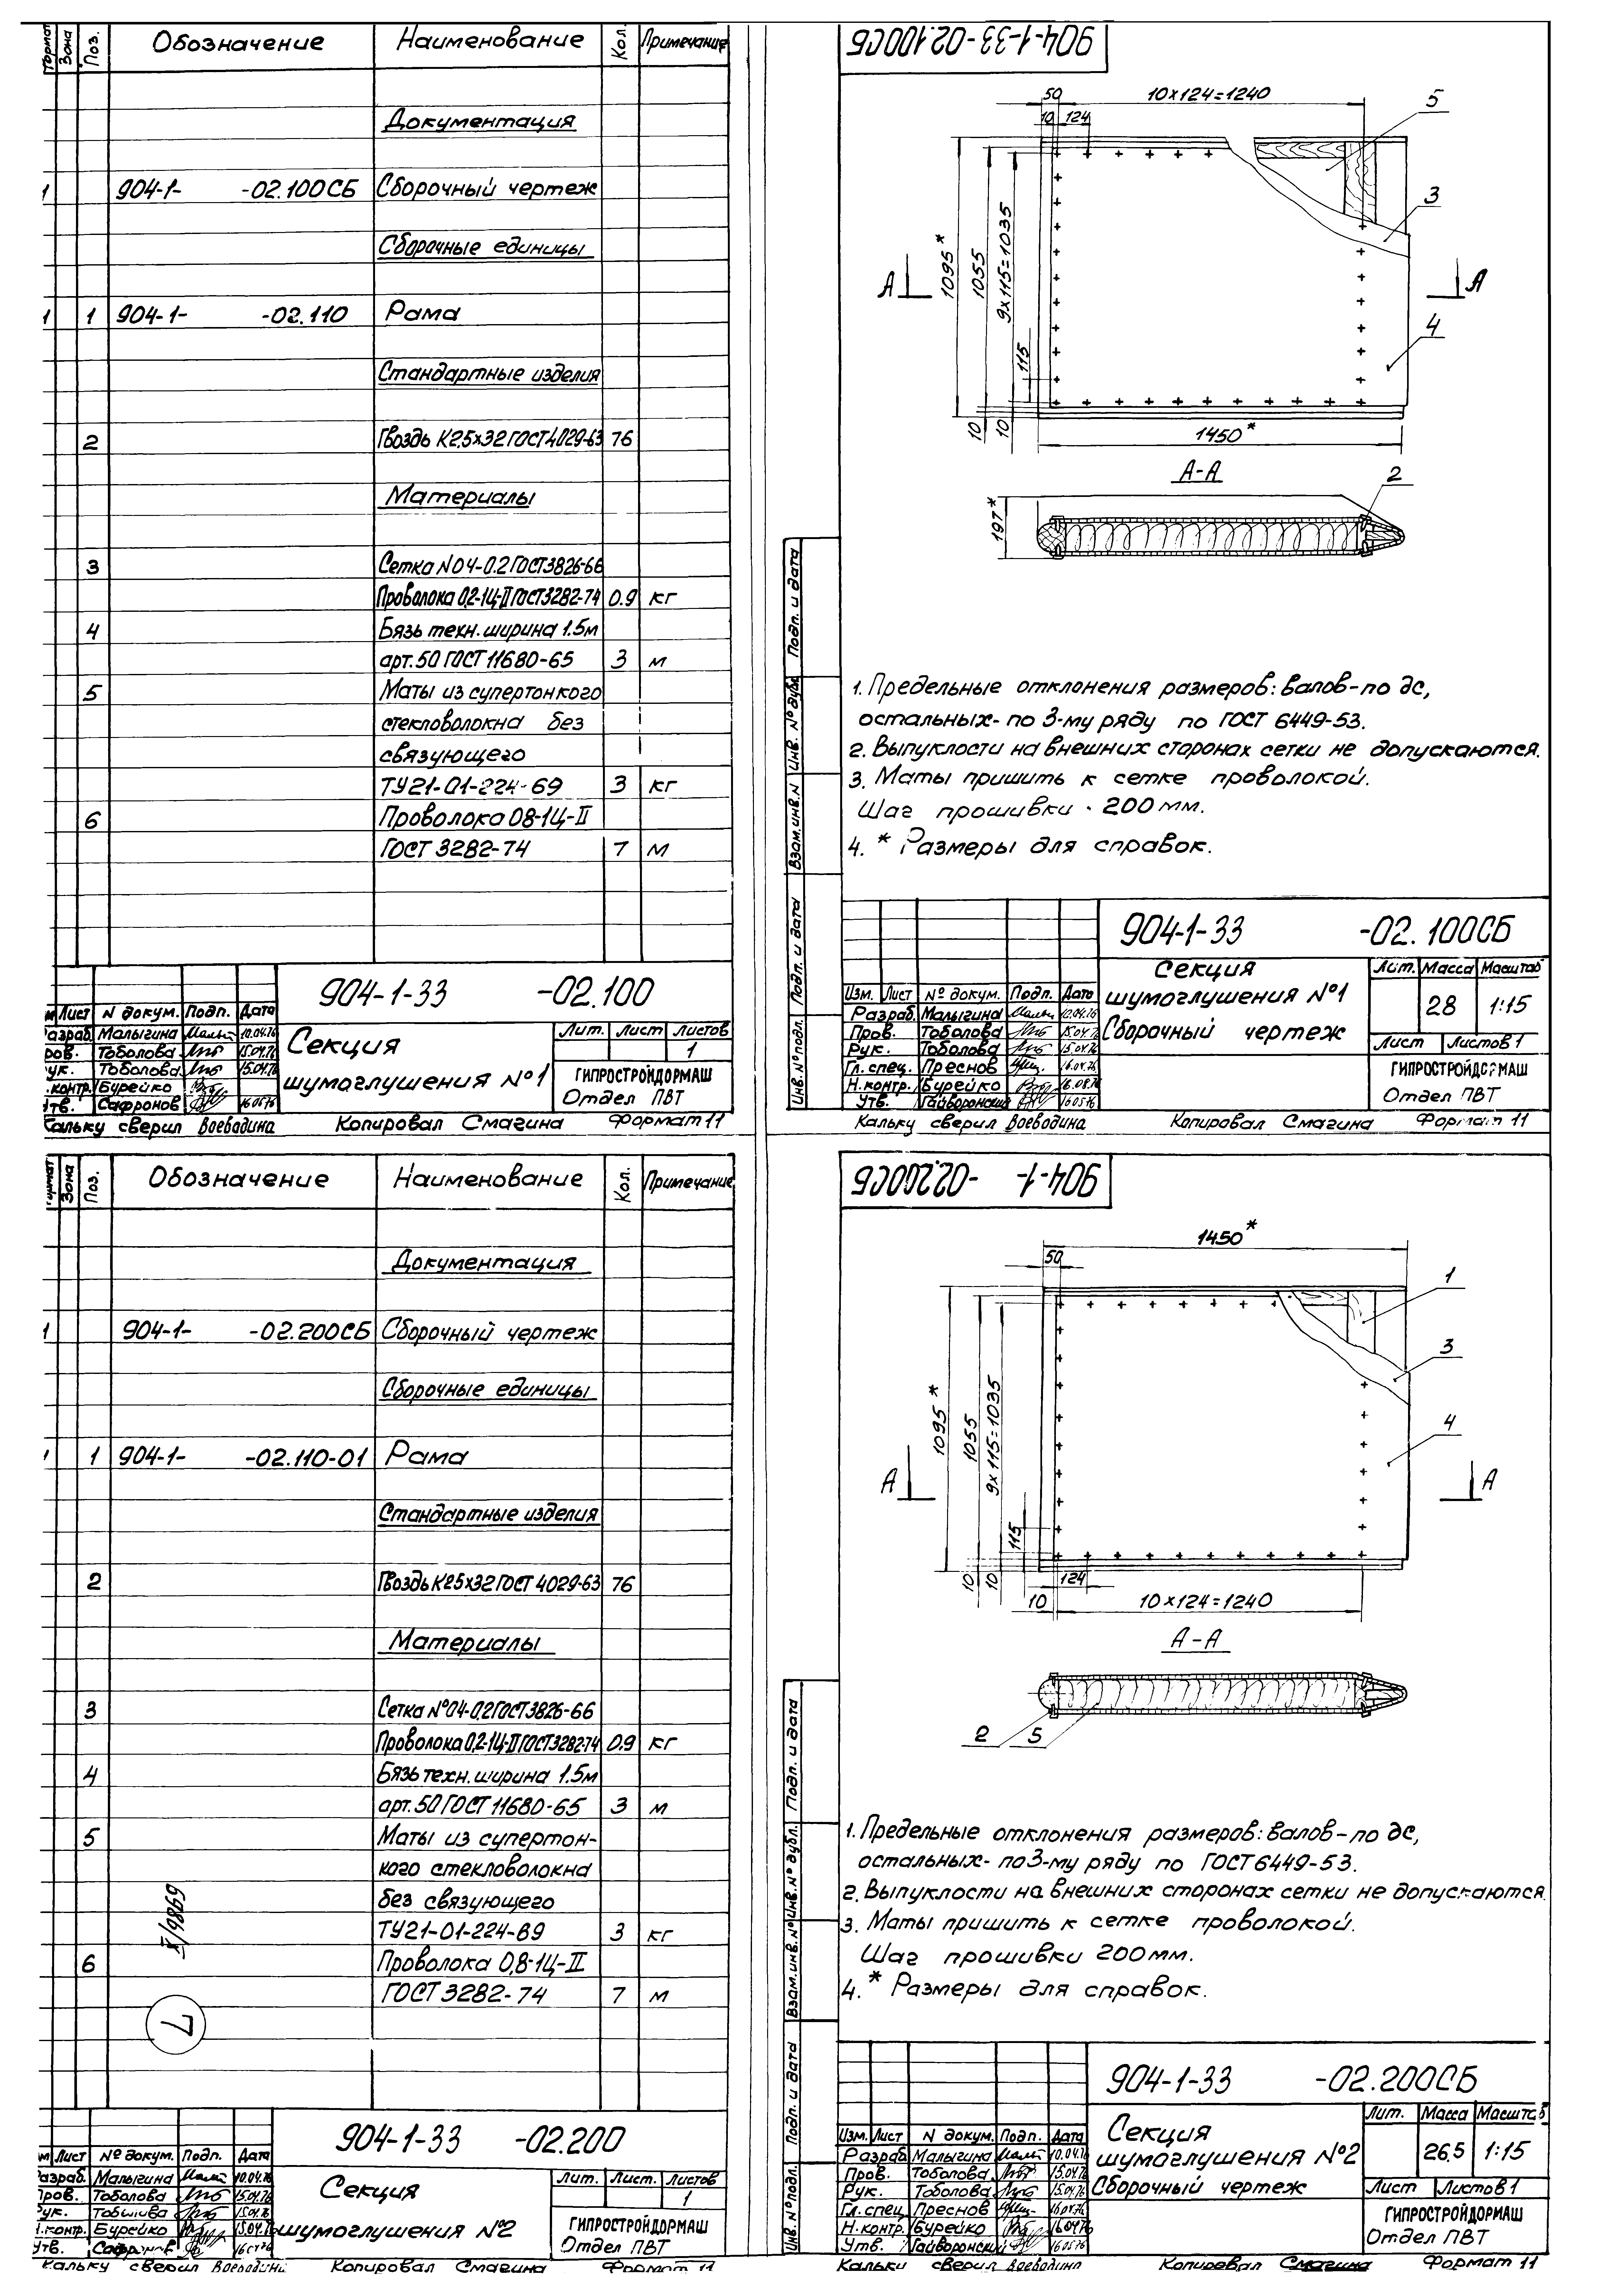 Формат Зона Поз. Обозначение Наименование Кол. Примечание
Документация
904-1- -02.100СБ Сборочный чертеж
Сборочные единицы
1 904-1- -02.110 Рама
Стандартные изделия
2 Гвоздь К2.5х32 ГОСТ 4029-63 76
Материалы
3 Сетка N04-0.2 ГОСТ 3826-66
Проволока 0.2-1Ц-II ГОСТ 3282-74 0.9 кг
4 Бязь техн. ширина 1.5м
арт. 50 ГОСТ 11680-65 3 м
5 Маты из супертонкого
стекловолокна без
связующего
ТУ21-01-224-69 3 кг
6 Проволока 08-1Ц-II
ГОСТ 3282-74 7 м
904-1-33 -02.100
Лист N докум. Подп. Дата
Разраб. Малыгина 10.04.76
Пров. Тоболова 15.04.76
Рук. Тоболова 15.04.76
Н.контр. Бурейко
Утв. Сафронов 16.05.76
Секция
шумоглушения №1
Лит. Лист Листов
1
ГИПРОСТРОЙДОРМАШ
Отдел ПВТ
Кальку сверил Воеводина Копировал Смагина Формат 11
904-1-33-02.100СБ
50 10х124=1240 5
10 124
3
1095* 1055 9х115=1035
А А
115 4
10 10
1450*
А-А
197* 2
1. Предельные отклонения размеров: валов-по дс,
остальных- по 3-му ряду по ГОСТ 6449-53.
2. Выпуклости на внешних сторонах сетки не допускаются.
3. Маты пришить к сетке проволокой.
Шаг прошивки 200мм.
4. * Размеры для справок.
Инв. № подл. Подп. и дата Взам. инв. N Инв. № дубл. Подп. и дата
904-1-33 -02.100СБ
Изм. Лист № докум. Подп. Дата
Разраб. Малыгина 12.04.76
Пров. Тоболова 15.04.76
Рук. Тоболова 15.04.76
Гл. спец. Преснов 16.04.76
Н.контр. Бурейко
Утв. Гайворонский 16.05.76
Секция
шумоглушения №1
Сборочный чертеж
Лит. Масса Масштаб
28 1:15
Лист Листов 1
ГИПРОСТРОЙДОРМАШ
Отдел ПВТ
Кальку сверил Воеводина Копировал Смагина Формат 11
Формат Зона Поз. Обозначение Наименование Кол. Примечание
Документация
904-1- -02.200СБ Сборочный чертеж
Сборочные единицы
1 904-1- -02.110-01 Рама
Стандартные изделия
2 Гвоздь К2.5х32 ГОСТ 4029-63 76
Материалы
3 Сетка №04-0.2 ГОСТ 3826-66
Проволока 0.2-1Ц-II ГОСТ 3282-74 0.9 кг
4 Бязь техн. ширина 1.5м
арт. 50 ГОСТ 11680-65 3 м
5 Маты из супертон-
кого стекловолокна
без связующего
ТУ21-01-224-69 3 кг
6 Проволока 0,8-1Ц-II
ГОСТ 3282-74 7 м
7
904-1-33 -02.200
Лист № докум. Подп. Дата
Разраб. Малыгина 10.04.76
Пров. Тоболова 15.04.76
Рук. Тоболова 15.04.76
Н.контр. Бурейко 15.04.76
Утв. 16.05.76
Секция
шумоглушения №2
Лит. Лист. Листов
1
ГИПРОСТРОЙДОРМАШ
Отдел ПВТ
Кальку сверил Воеводина Копировал Смагина Формат 11
904-1- -02.200СБ
1450*
50
1
3
1095* 1055 9х115=1035
4
А А
115
10 10 124
10 10х124=1240
А-А
2 5
1. Предельные отклонения размеров: валов-по дс,
остальных- по 3-му ряду по ГОСТ 6449-53.
2. Выпуклости на внешних сторонах сетки не допускаются.
3. Маты пришить к сетке проволокой.
Шаг прошивки 200мм.
4. * Размеры для справок.
Инв. № подл. Подп. и дата Взам. инв. № Инв. № дубл. Подп. и дата
904-1-33 -02.200СБ
Изм. Лист N докум. Подп. Дата
Разраб. Малыгина 10.04.76
Пров. Тоболова 15.04.76
Рук. Тоболова 15.04.76
Гл. спец. Преснов 16.04.76
Н.контр. Бурейко 16.04.76
Утв. Гайворонский 16.05.76
Секция
шумоглушения №2
Сборочный чертеж
Лит. Масса Масштаб
26.5 1:15
Лист Листов 1
ГИПРОСТРОЙДОРМАШ
Отдел ПВТ
Кальки сверил Воеводина Копировал Смагина Формат 11